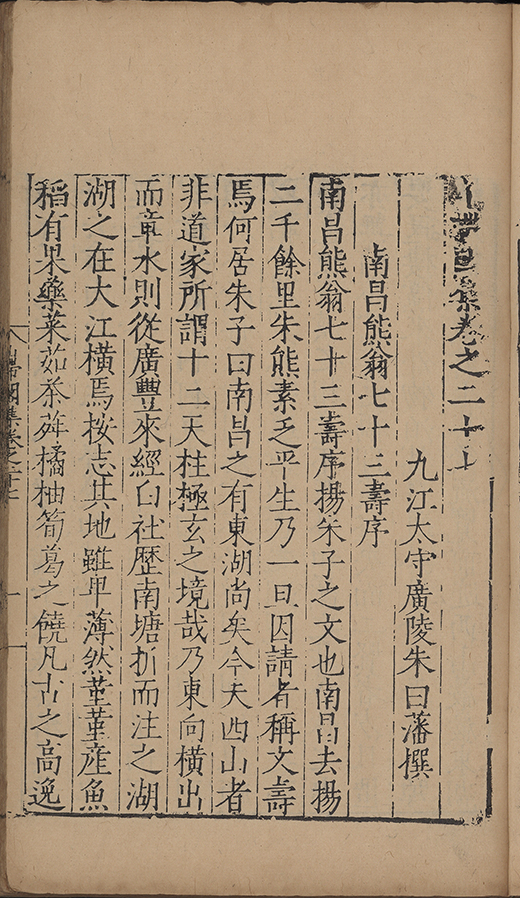 山帶閣集卷之二十七
九江太守廣陵朱曰藩撰
南昌熊翁七十三壽序
南昌熊翁七十三壽序揚朱子之文也南昌去揚
二千餘里朱熊素乏平生乃一旦因請者稱文壽
焉何居朱子曰南昌之有東湖尚矣今夫西山者
非道家所謂十二天柱極玄之境哉乃東向橫出
而章水則從廣豐來經臼社歷南塘折而注之湖
湖之在大江橫焉按志其地雖卑薄然菫菫産魚
稻有果藥菜茹茶荈橘柚筍葛之饒凡古之高逸